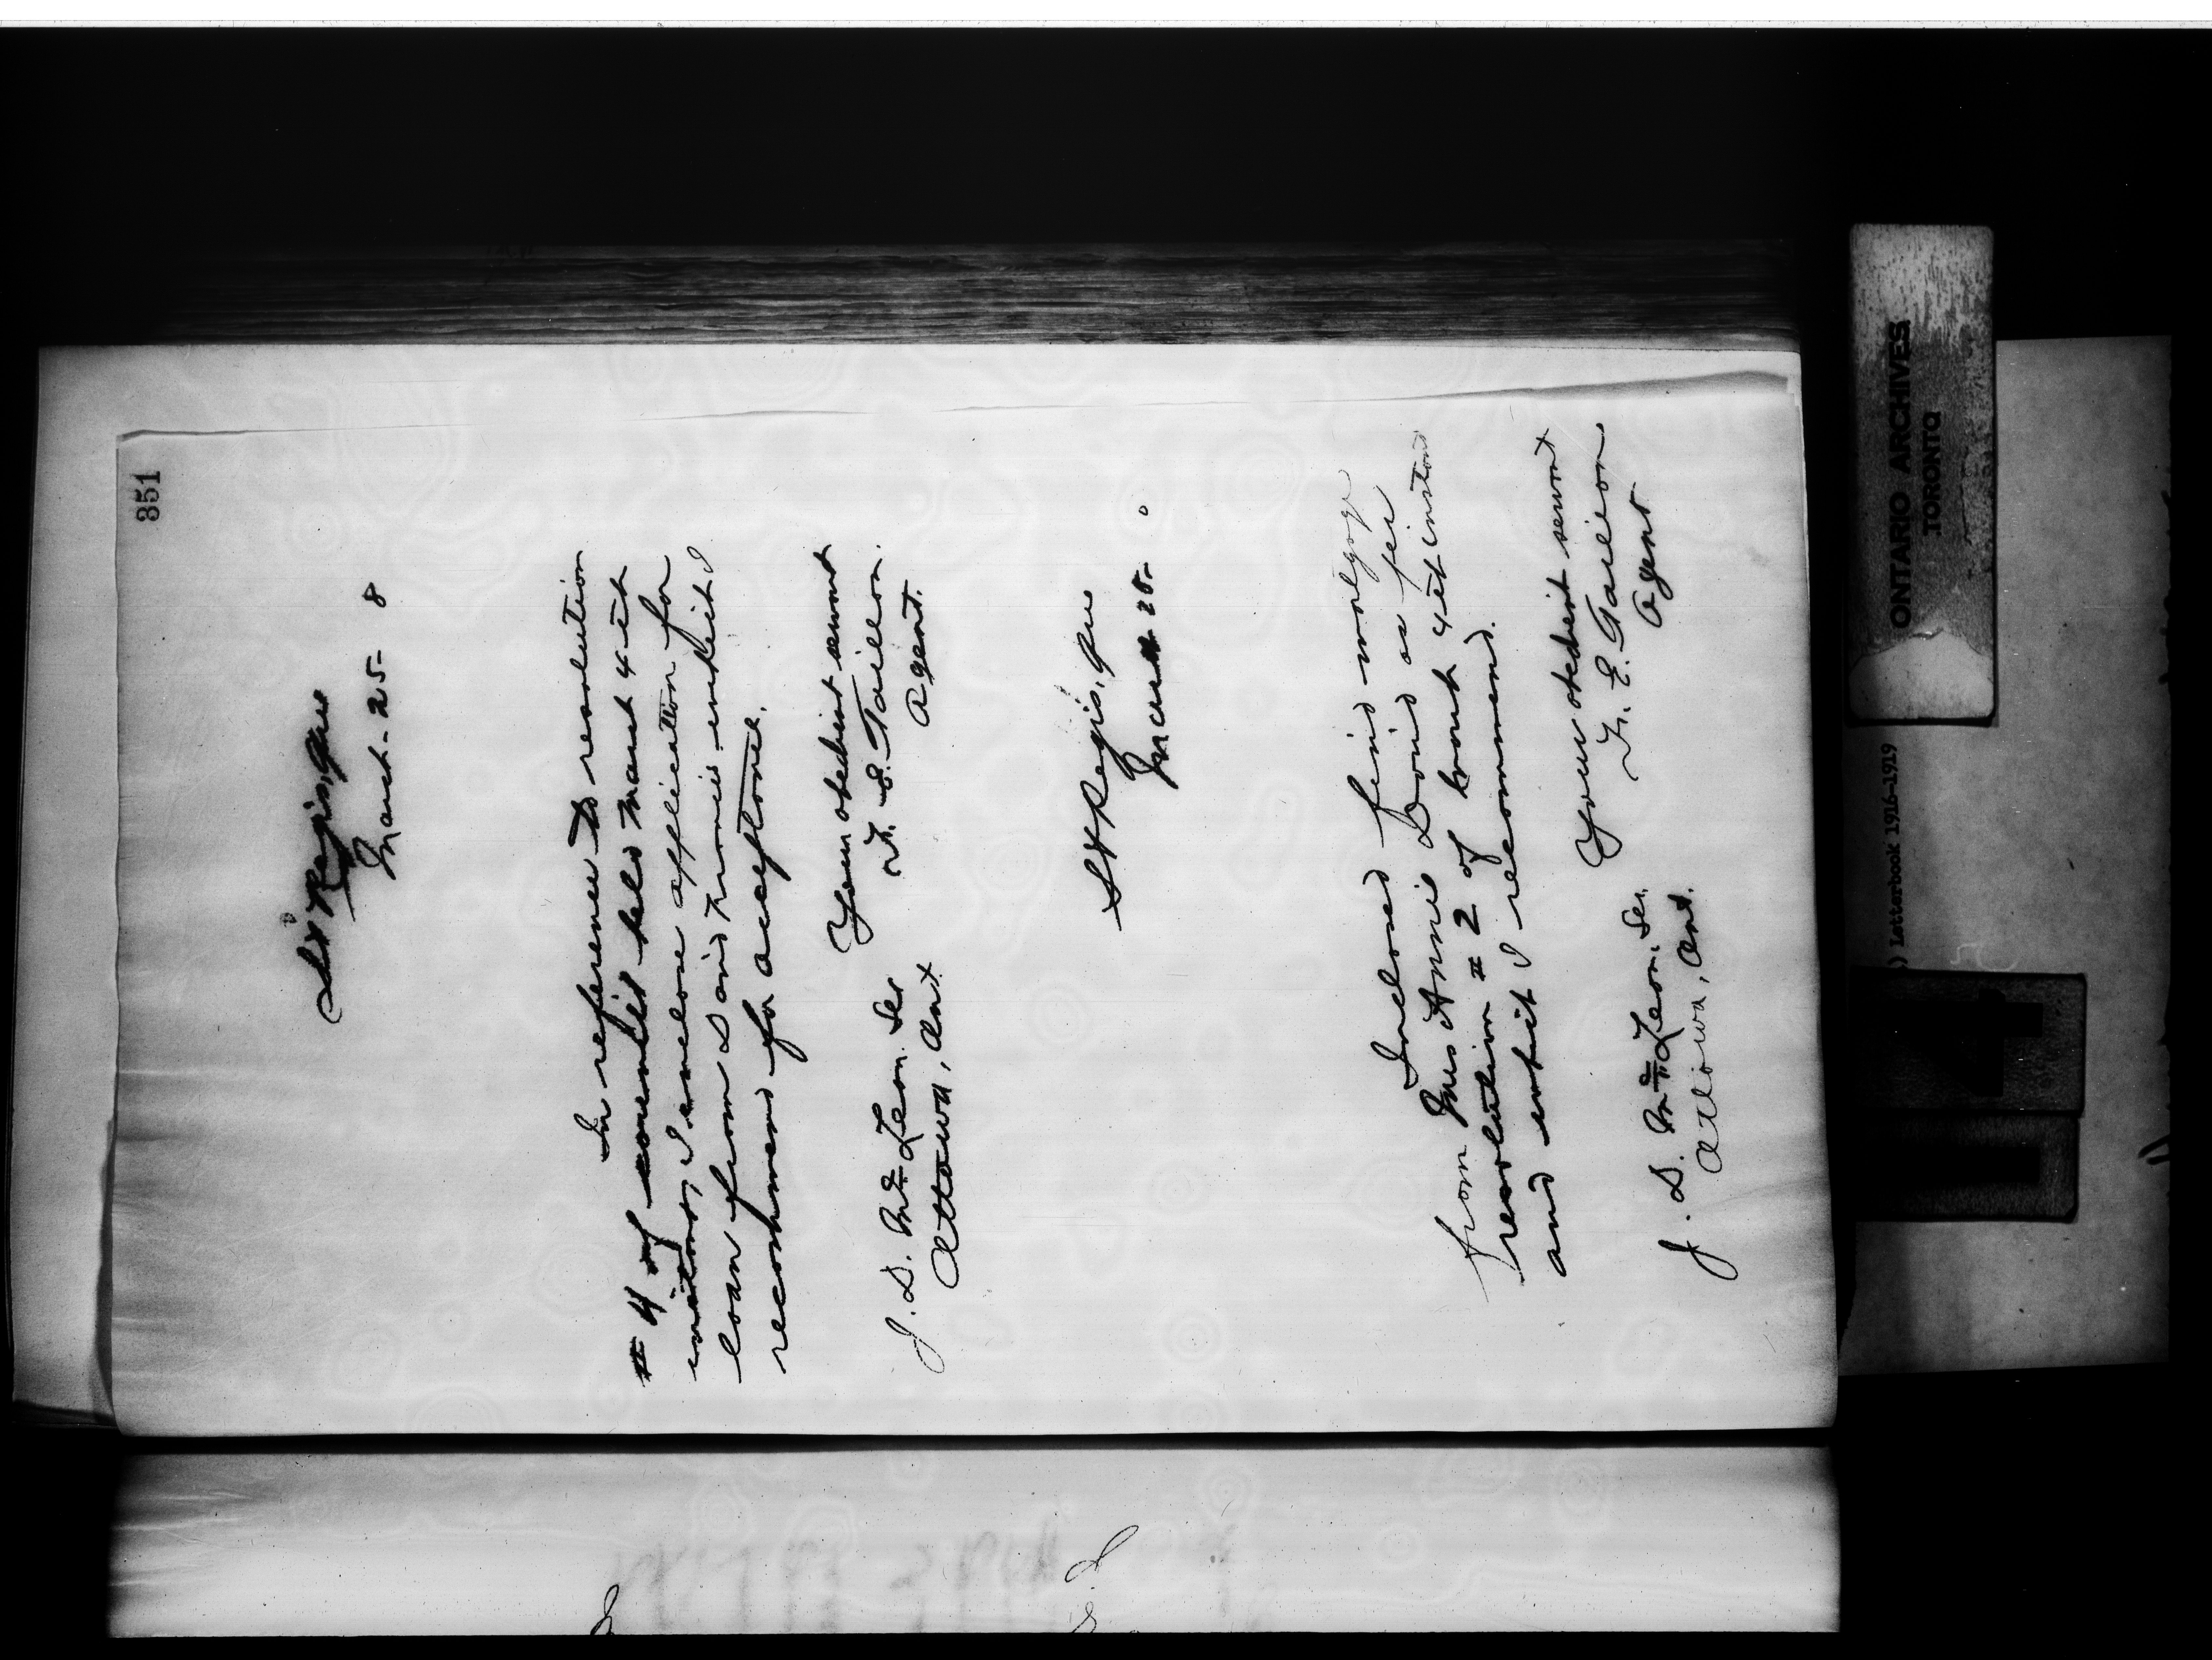 351
St Regis, Que
March - 25 - 8
In reference to resolution
# 4 of council held March 4th
instant, I enclose application for
loan from David Francis which I
recommend for acceptance.
Your obedient servant
F. E. Taillon.
Agent.
J. D. McLean. Sec
Ottawa, Ont.
St Regis, Que
March 25-
Inclosed find
from Mrs Annie David as per
resolution # 2 of 4th instant
and which I recommend.
Your obedient servant
F. E. Taillon
Agent
J. D. McLean. Sec.
Ottawa, Ont.
ONTARIO ARCHIVES
TORONTO
) Letterbook 1916-1919
4